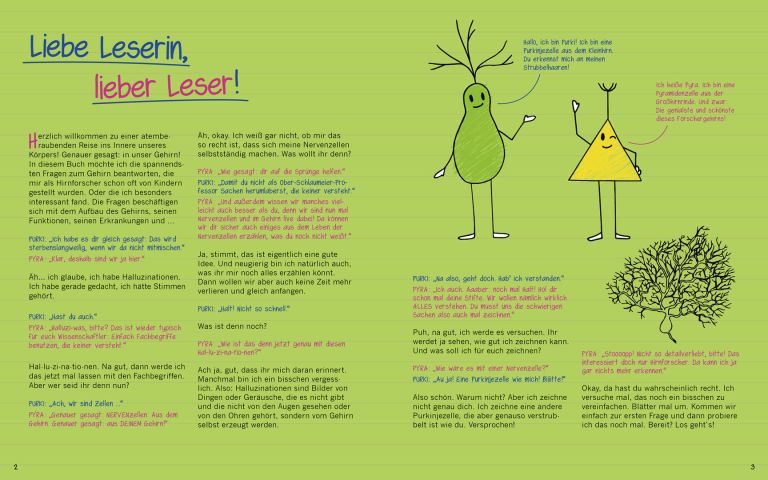 Liebe Leserin,
lieber Leser!
Herzlich willkommen zu einer atembe-
raubenden Reise ins Innere unseres
Körpers! Genauer gesagt: in unser Gehirn!
In diesem Buch möchte ich die spannends-
ten Fragen zum Gehirn beantworten, die
mir als Hirnforscher schon oft von Kindern
gestellt wurden. Oder die ich besonders
interessant fand. Die Fragen beschäftigen
sich mit dem Aufbau des Gehirns, seinen
Funktionen, seinen Erkrankungen und ...
PURKI: „Ich habe es dir gleich gesagt: Das wird
sterbenslangweilig, wenn wir da nicht mitmischen."
PYRA: „Klar, deshalb sind wir ja hier."
Äh... ich glaube, ich habe Halluzinationen.
Ich habe gerade gedacht, ich hätte Stimmen
gehört.
PURKI: „Hast du auch."
PYRA: „Halluzi-was, bitte? Das ist wieder typisch
für euch Wissenschaftler: Einfach Fachbegriffe
benutzen, die keiner versteht."
Hal-lu-zi-na-tio-nen. Na gut, dann werde ich
das jetzt mal lassen mit den Fachbegriffen.
Aber wer seid ihr denn nun?
PURKI: „Ach, wir sind Zellen ..."
PYRA: „Genauer gesagt: NERVENzellen. Aus dem
Gehirn. Genauer gesagt: aus DEINEM Gehirn!"
Äh, okay. Ich weiß gar nicht, ob mir das
so recht ist, dass sich meine Nervenzellen
selbstständig machen. Was wollt ihr denn?
PYRA: „Wie gesagt: dir auf die Sprünge helfen."
PURKI: „Damit du nicht als Ober-Schlaumeier-Pro-
fessor Sachen herumlaberst, die keiner versteht."
PYRA: „Und außerdem wissen wir manches viel-
leicht auch besser als du, denn wir sind nun mal
Nervenzellen und im Gehirn live dabei! Da können
wir dir sicher auch einiges aus dem Leben der
Nervenzellen erzählen, was du noch nicht weißt."
Ja, stimmt, das ist eigentlich eine gute
Idee. Und neugierig bin ich natürlich auch,
was ihr mir noch alles erzählen könnt.
Dann wollen wir aber auch keine Zeit mehr
verlieren und gleich anfangen.
PURKI: „Halt! Nicht so schnell."
Was ist denn noch?
PYRA: „Wie ist das denn jetzt genau mit diesen
Hal-lu-zi-na-tio-nen?"
Ach ja, gut, dass ihr mich daran erinnert.
Manchmal bin ich ein bisschen vergess-
lich. Also: Halluzinationen sind Bilder von
Dingen oder Geräusche, die es nicht gibt
und die nicht von den Augen gesehen oder
von den Ohren gehört, sondern vom Gehirn
selbst erzeugt werden.
2
Hallo, ich bin Purki! Ich bin eine
Purkinjezelle aus dem Kleinhirn.
Du erkennst mich an meinen
Strubbelhaaren!
Ich heiße Pyra. Ich bin eine
Pyramidenzelle aus der
Großhirnrinde. Und zwar:
Die genialste und schönste
dieses Forschergehirns!
PURKI: „Na also, geht doch. Hab' ich verstanden."
PYRA: „Ich auch. Aaaber: noch mal Halt! Hol dir
schon mal deine Stifte. Wir wollen nämlich wirklich
ALLES verstehen. Du musst uns die schwierigen
Sachen also auch mal zeichnen."
Puh, na gut, ich werde es versuchen. Ihr
werdet ja sehen, wie gut ich zeichnen kann.
Und was soll ich für euch zeichnen?
PYRA: „Wie wäre es mit einer Nervenzelle?"
PURKI: „Au ja! Eine Purkinjezelle wie mich! Bitte!"
Also schön. Warum nicht? Aber ich zeichne
nicht genau dich. Ich zeichne eine andere
Purkinjezelle, die aber genauso verstrub-
belt ist wie du. Versprochen!
PYRA: „Stoooopp! Nicht so detailverliebt, bitte! Das
interessiert doch nur Hirnforscher. Da kann ich ja
gar nichts mehr erkennen."
Okay, da hast du wahrscheinlich recht. Ich
versuche mal, das noch ein bisschen zu
vereinfachen. Blätter mal um. Kommen wir
einfach zur ersten Frage und dann probiere
ich das noch mal. Bereit? Los geht's!
3